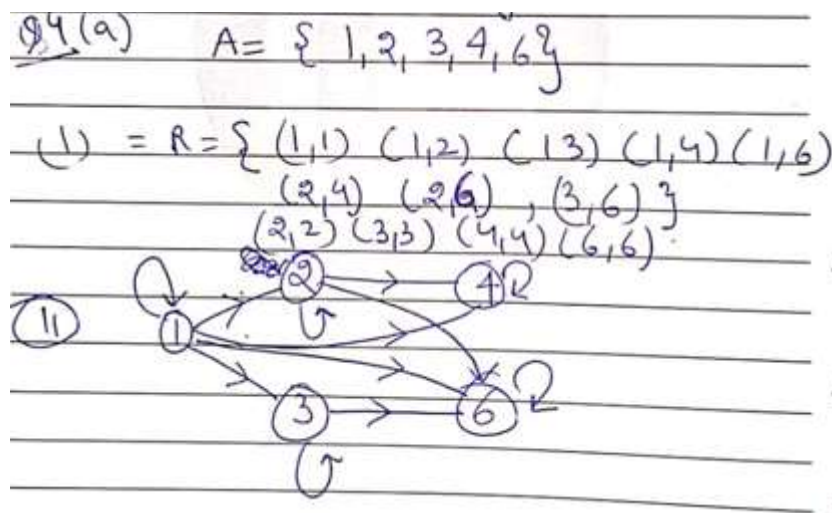 Q4 (a) A = { 1, 2, 3, 4, 6}
(1) = R = { (1,1) (1,2) (13) (1,4) (1,6)
(2,4) (2,6) , (3,6) }
(2,2) (3,3) (4,4) (6,6)
2 4
11 1
3 6